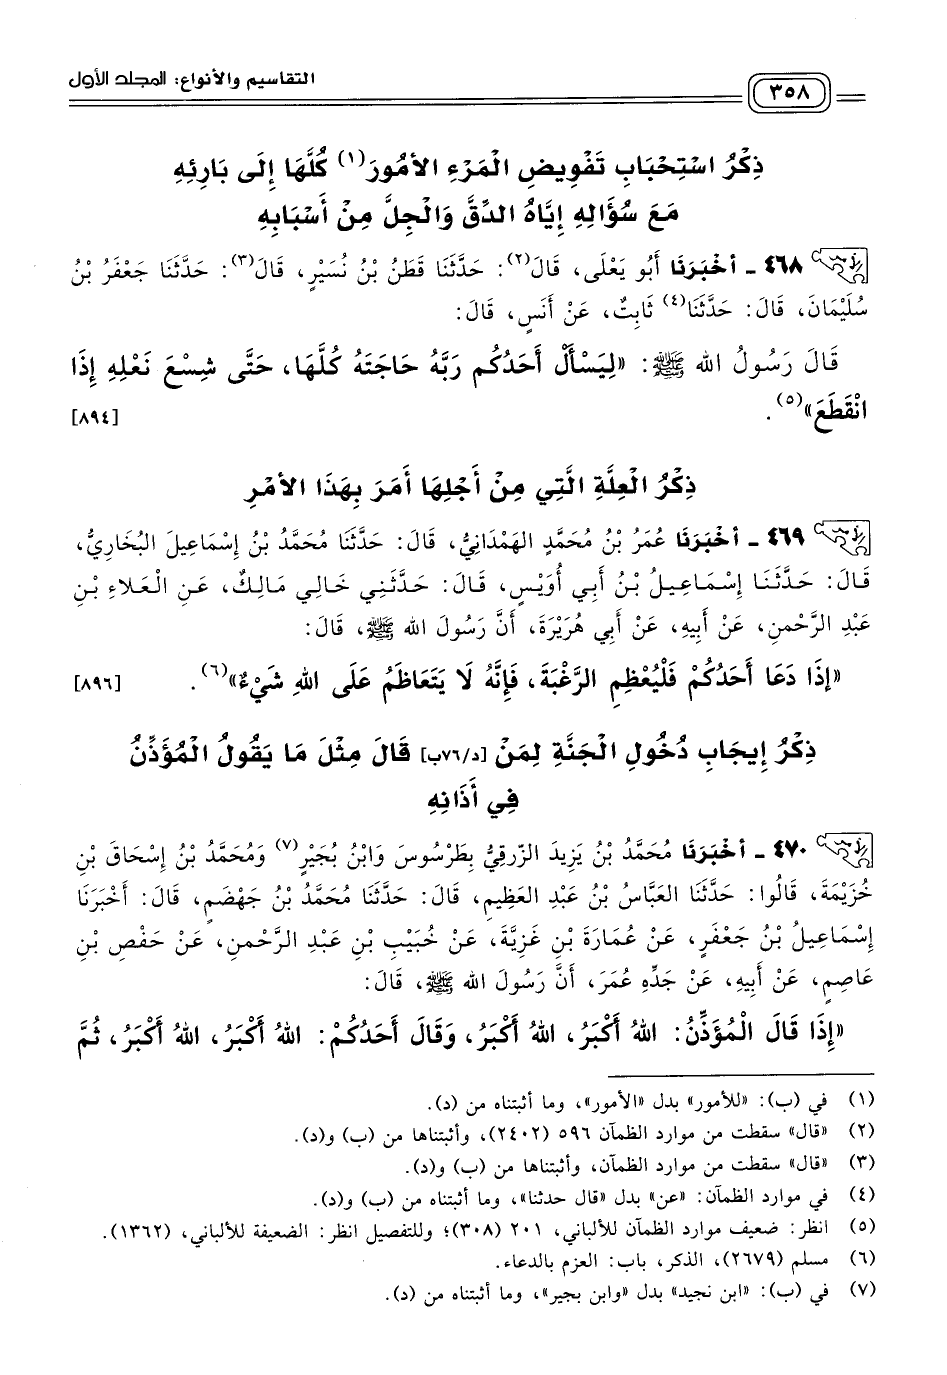 التقاسيم والأنواع: المجلد الأول
٣٥٨
ذِكْرُ اسْتِحْبَابِ تَفْوِيضِ الْمَرْءِ الأمُورَ(١) كُلَّهَا إِلَى بَارِئِهِ
مَعَ سُؤَالِهِ إِيَّاهُ الدِّقَّ وَالْجِلَّ مِنْ أَسْبَابِهِ
٤٦٨ ـ أخْبَرَنَا أَبُو يَعْلَى، قَالَ(٢): حَدَّثَنَا قَطَنُ بْنُ نُسَيْرٍ، قَالَ(٣): حَدَّثَنَا جَعْفَرُ بْنُ
سُلَيْمَانَ، قَالَ: حَدَّثَنَا(٤) ثَابِتٌ، عَنْ أَنَسٍ، قَالَ:
قَالَ رَسُولُ الله ﷺ: «لِيَسْأَلْ أَحَدُكُم رَبَّهُ حَاجَتَهُ كُلَّهَا، حَتَّى شِسْعَ نَعْلِهِ إِذَا
انْقَطَعَ»(٥). [٨٩٤]
ذِكْرُ الْعِلَّةِ الَّتِي مِنْ أَجْلِهَا أَمَرَ بِهَذَا الأمْرِ
٤٦٩ ـ أخْبَرَنَا عُمَرُ بْنُ مُحَمَّدٍ الهَمْدَانِيُّ، قَالَ: حَدَّثَنَا مُحَمَّدُ بْنُ إِسْمَاعِيلَ البُخَارِيُّ،
قَالَ: حَدَّثَنَا إِسْمَاعِيلُ بْنُ أَبِي أُوَيْسٍ، قَالَ: حَدَّثَنِي خَالِي مَالِكٌ، عَنِ الْعَلاءِ بْنِ
عَبْدِ الرَّحْمنِ، عَنْ أَبِيهِ، عَنْ أَبِي هُرَيْرَةَ، أَنَّ رَسُولَ الله ﷺ، قَالَ:
«إِذَا دَعَا أَحَدُكُمْ فَلْيُعْظِمِ الرَّغْبَةَ، فَإِنَّهُ لَا يَتَعَاظَمُ عَلَى اللهِ شَيْءٌ»(٦). [٨٩٦]
ذِكْرُ إِيجَابِ دُخُولِ الْجَنَّةِ لِمَنْ [د/٧٦ب] قَالَ مِثْلَ مَا يَقُولُ الْمُؤَذِّنُ
فِي أَذَانِهِ
٤٧٠ ـ أخْبَرَنَا مُحَمَّدُ بْنُ يَزِيدَ الزّرقِيُّ بِطَرْسُوسَ وَابْنُ بُجَيْرٍ(٧) وَمُحَمَّدُ بْنُ إِسْحَاقَ بْنِ
خُزَيْمَةَ، قَالُوا: حَدَّثَنَا العَبَّاسُ بْنُ عَبْدِ العَظِيمِ، قَالَ: حَدَّثَنَا مُحَمَّدُ بْنُ جَهْضَمٍ، قَالَ: أَخْبَرَنَا
إِسْمَاعِيلُ بْنُ جَعْفَرٍ، عَنْ عُمَارَةَ بْنِ غَزِيَّةَ، عَنْ خُبَيْبِ بْنِ عَبْدِ الرَّحْمنِ، عَنْ حَفْصِ بْنِ
عَاصِمٍ، عَنْ أَبِيهِ، عَنْ جَدِّهِ عُمَرَ، أَنَّ رَسُولَ الله ﷺ، قَالَ:
«إِذَا قَالَ الْمُؤَذِّنُ: اللهُ أَكْبَرُ، اللهُ أَكْبَرُ، وَقَالَ أَحَدُكُمْ: اللهُ أَكْبَرُ، اللهُ أَكْبَرُ، ثُمَّ
(١) في (ب): «للأمور» بدل «الأمور»، وما أثبتناه من (د).
(٢) «قال» سقطت من موارد الظمآن ٥٩٦ (٢٤٠٢)، وأثبتناها من (ب) و(د).
(٣) «قال» سقطت من موارد الظمآن، وأثبتناها من (ب) و(د).
(٤) في موارد الظمآن: «عن» بدل «قال حدثنا»، وما أثبتناه من (ب) و(د).
(٥) انظر: ضعيف موارد الظمآن للألباني، ٢٠١ (٣٠٨)؛ وللتفصيل انظر: الضعيفة للألباني، (١٣٦٢).
(٦) مسلم (٢٦٧٩)، الذكر، باب: العزم بالدعاء.
(٧) في (ب): «ابن نجيد» بدل «وابن بجير»، وما أثبتناه من (د).